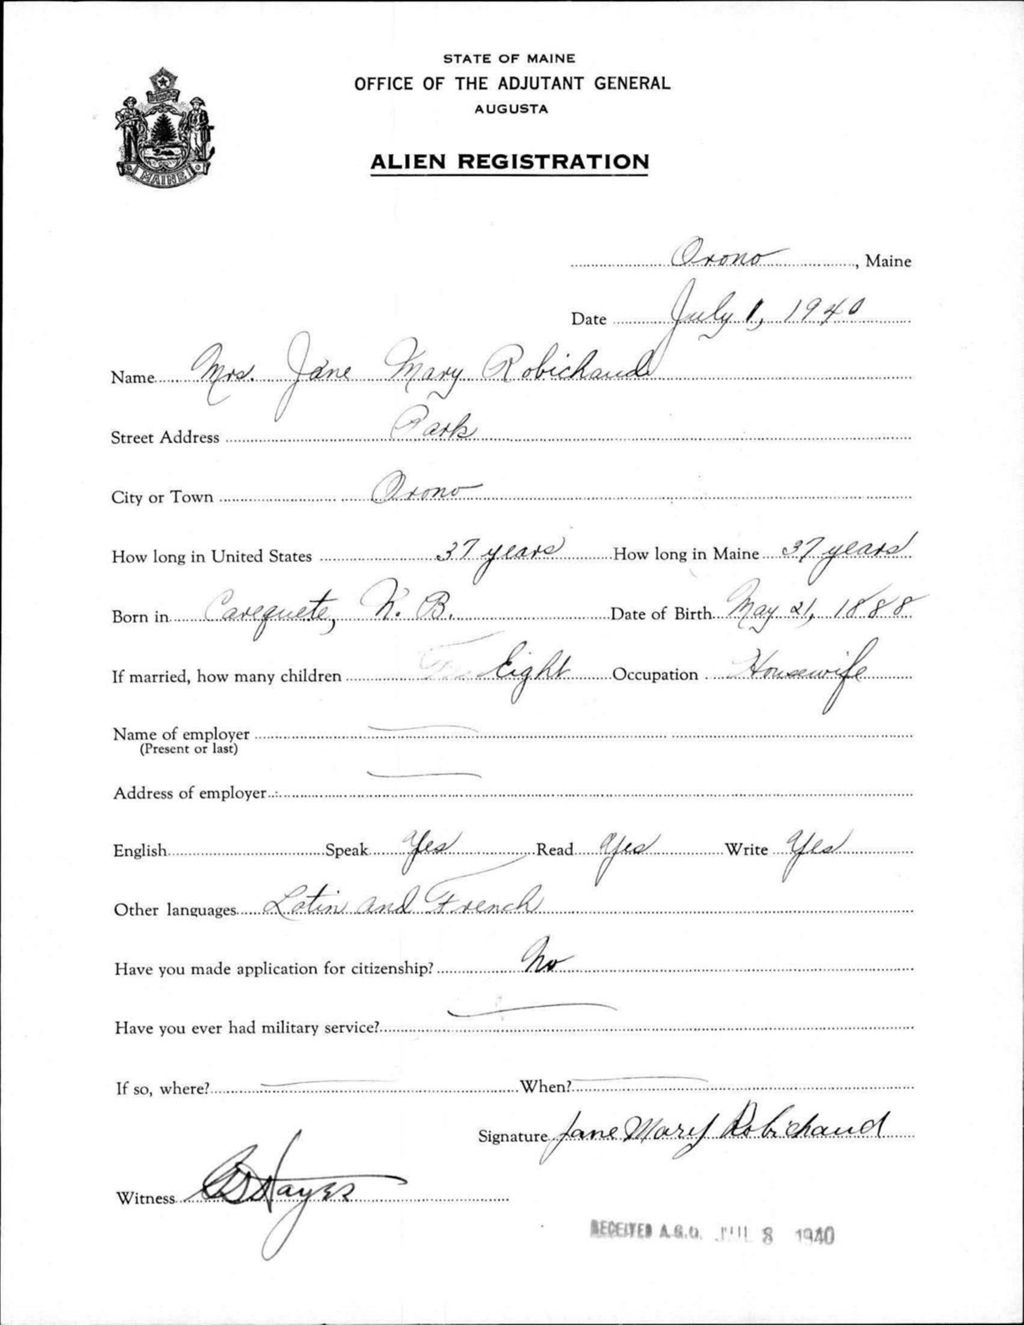 STATE OF MAINE
OFFICE OF THE ADJUTANT GENERAL
AUGUSTA
ALIEN REGISTRATION
MAINE
Orono, Maine
Date July 1, 1940
Name Mrs. Jane Mary Robichaud
Street Address Park
City or Town Orono
How long in United States 37 years How long in Maine 37 years
Born in Caraquete, N. B. Date of Birth May 21, 1888
If married, how many children Eight Occupation Housewife
Name of employer
(Present or last)
Address of employer
English Speak Yes Read Yes Write Yes
Other languages Latin and French
Have you made application for citizenship? No
Have you ever had military service?
If so, where? When?
Signature Jane Mary Robichaud
Witness Hayes
RECEIVED A.G.O. JUL 8 1940